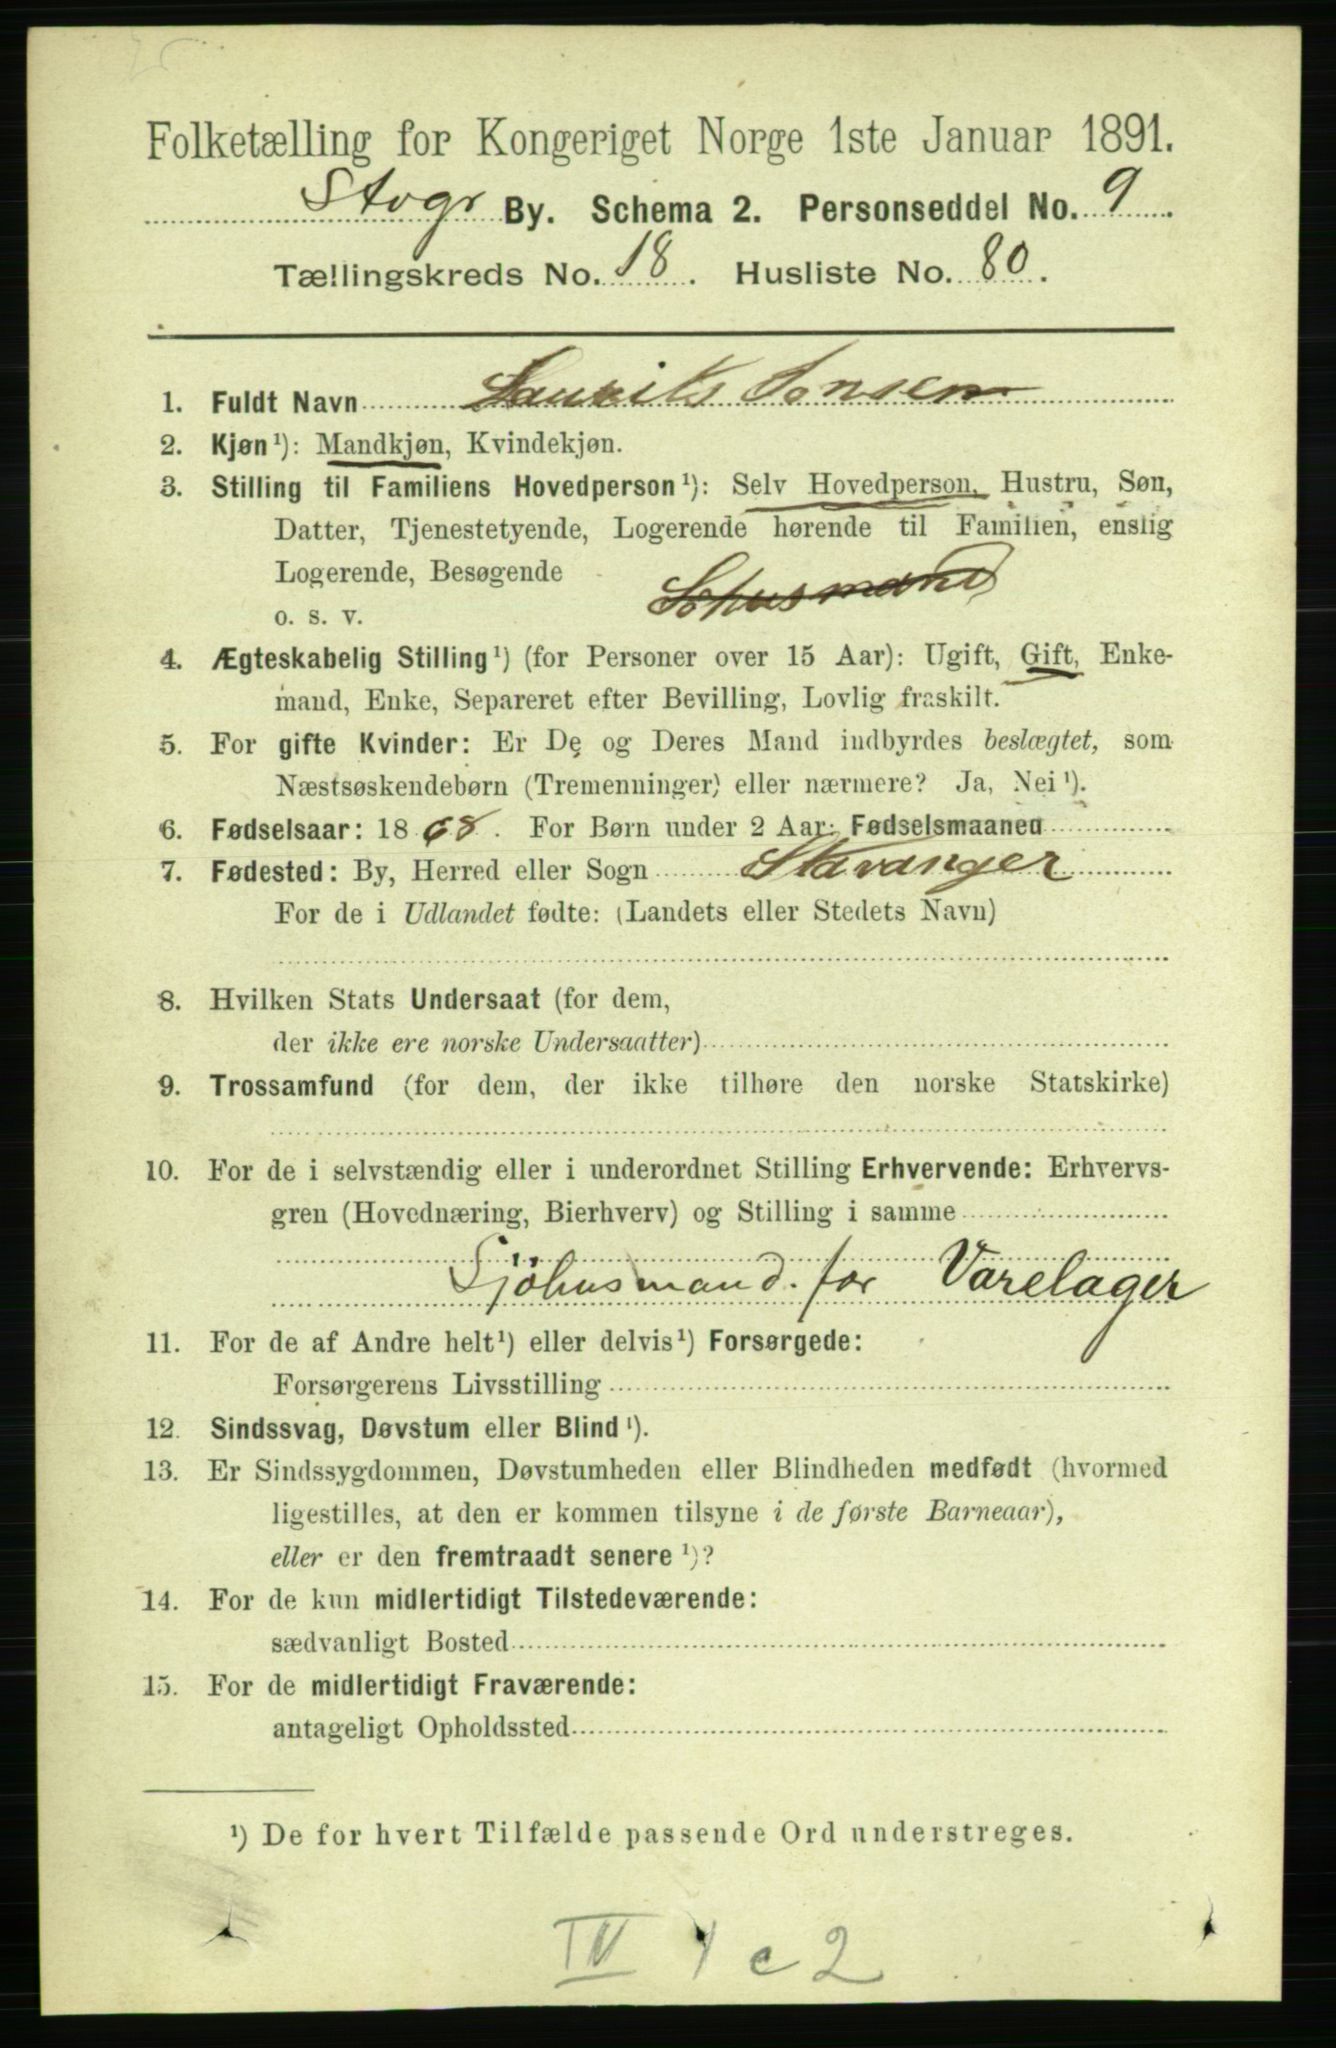 Folketælling for Kongeriget Norge 1ste Januar 1891.
Stvgr By. Schema 2. Personseddel No. 9.
Tællingskreds No. 18. Husliste No. 80.
1. Fuldt Navn Laurits Jonsen
2. Kjøn¹): Mandkjøn, Kvindekjøn.
3. Stilling til Familiens Hovedperson¹): Selv Hovedperson, Hustru, Søn,
Datter, Tjenestetyende, Logerende hørende til Familien, enslig
Logerende, Besøgende
o. s. v.
4. Ægteskabelig Stilling¹) (for Personer over 15 Aar): Ugift, Gift, Enke-
mand, Enke, Separeret efter Bevilling, Lovlig fraskilt.
5. For gifte Kvinder: Er De og Deres Mand indbyrdes beslægtet, som
Næstsøskendebørn (Tremenninger) eller nærmere? Ja, Nei¹).
6. Fødselsaar: 1868. For Børn under 2 Aar: Fødselsmaaned
7. Fødested: By, Herred eller Sogn Stavanger
For de i Udlandet fødte: (Landets eller Stedets Navn)
8. Hvilken Stats Undersaat (for dem,
der ikke ere norske Undersaatter)
9. Trossamfund (for dem, der ikke tilhøre den norske Statskirke)
10. For de i selvstændig eller i underordnet Stilling Erhvervende: Erhvervs-
gren (Hovednæring, Bierhverv) og Stilling i samme
Sjöhusmand for Varelager
11. For de af Andre helt¹) eller delvis¹) Forsørgede:
Forsørgerens Livsstilling
12. Sindssvag, Døvstum eller Blind¹).
13. Er Sindssygdommen, Døvstumheden eller Blindheden medfødt (hvormed
ligestilles, at den er kommen tilsyne i de første Barneaar),
eller er den fremtraadt senere¹)?
14. For de kun midlertidigt Tilstedeværende:
sædvanligt Bosted
15. For de midlertidigt Fraværende:
antageligt Opholdssted
¹) De for hvert Tilfælde passende Ord understreges.
IV 1 c 2